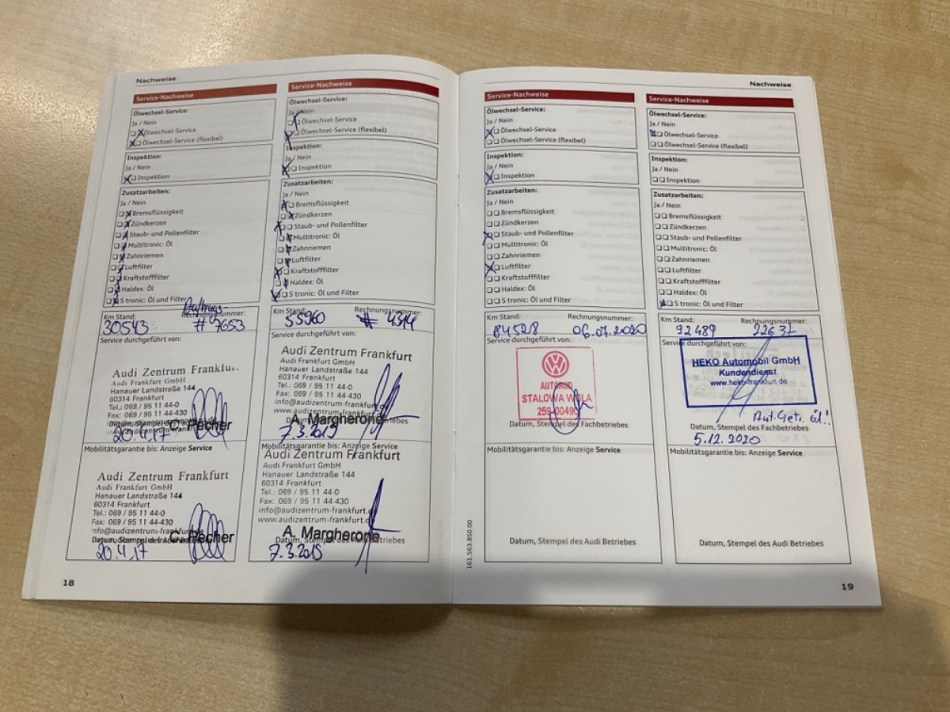 Nachweise
Service-Nachweise
Ölwechsel-Service:
Ja / Nein
Ölwechsel-Service
Ölwechsel-Service (flexibel)
Inspektion:
Ja / Nein
Inspektion
Zusatzarbeiten:
Ja / Nein
Bremsflüssigkeit
Zündkerzen
Staub- und Pollenfilter
Multitronic: Öl
Zahnriemen
Luftfilter
Kraftstofffilter
Haldex: Öl
S tronic: Öl und Filter
Km Stand:
30543
# 7653
Service durchgeführt von:
Audi Zentrum Frankfurt
Audi Frankfurt GmbH
Hanauer Landstraße 144
60314 Frankfurt
Tel.: 069 / 95 11 44-0
Fax: 069 / 95 11 44-430
C. Pecher
20.4.17
Mobilitätsgarantie bis: Anzeige Service
Audi Zentrum Frankfurt
Audi Frankfurt GmbH
Hanauer Landstraße 144
60314 Frankfurt
Tel.: 069 / 95 11 44-0
Fax: 069 / 95 11 44-430
C. Pecher
20.4.17
18
Service-Nachweise
Ölwechsel-Service:
Ja / Nein
Ölwechsel-Service
Ölwechsel-Service (flexibel)
Inspektion:
Ja / Nein
Inspektion
Zusatzarbeiten:
Ja / Nein
Bremsflüssigkeit
Zündkerzen
Staub- und Pollenfilter
Multitronic: Öl
Zahnriemen
Luftfilter
Kraftstofffilter
Haldex: Öl
S tronic: Öl und Filter
Km Stand: Rechnungsnummer:
55960 # 4314
Service durchgeführt von:
Audi Zentrum Frankfurt
Audi Frankfurt GmbH
Hanauer Landstraße 144
60314 Frankfurt
Tel.: 069 / 95 11 44-0
Fax: 069 / 95 11 44-430
info@audizentrum-frankfurt.de
www.audizentrum-frankfurt.de
A. Margherone
7.3.2019
Mobilitätsgarantie bis: Anzeige Service
Audi Zentrum Frankfurt
Audi Frankfurt GmbH
Hanauer Landstraße 144
60314 Frankfurt
Tel.: 069 / 95 11 44-0
Fax: 069 / 95 11 44-430
info@audizentrum-frankfurt.de
www.audizentrum-frankfurt.de
A. Margherone
Datum, Stempel des Audi Betriebes
7.3.2019
161.563.850.00
Nachweise
Service-Nachweise
Ölwechsel-Service:
Ja / Nein
Ölwechsel-Service
Ölwechsel-Service (flexibel)
Inspektion:
Ja / Nein
Inspektion
Zusatzarbeiten:
Ja / Nein
Bremsflüssigkeit
Zündkerzen
Staub- und Pollenfilter
Multitronic: Öl
Zahnriemen
Luftfilter
Kraftstofffilter
Haldex: Öl
S tronic: Öl und Filter
Km Stand: Rechnungsnummer:
84528 06.07.2020
Service durchgeführt von:
STALOWA WOLA
Datum, Stempel des Fachbetriebes
Mobilitätsgarantie bis: Anzeige Service
Datum, Stempel des Audi Betriebes
Service-Nachweise
Ölwechsel-Service:
Ja / Nein
Ölwechsel-Service
Ölwechsel-Service (flexibel)
Inspektion:
Ja / Nein
Inspektion
Zusatzarbeiten:
Ja / Nein
Bremsflüssigkeit
Zündkerzen
Staub- und Pollenfilter
Multitronic: Öl
Zahnriemen
Luftfilter
Kraftstofffilter
Haldex: Öl
S tronic: Öl und Filter
Km Stand: Rechnungsnummer:
92489 22637
Service durchgeführt von:
HEKO Automobil GmbH
Kundendienst
www.heko-frankfurt.de
Aut. Getr. Öl!
Datum, Stempel des Fachbetriebes
5.12.2020
Mobilitätsgarantie bis: Anzeige Service
Datum, Stempel des Audi Betriebes
19